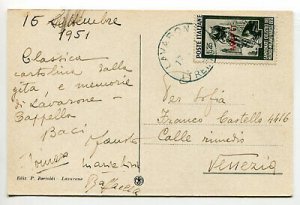 15 Settembre
1951
Classica
cartolina dalla
gita, e memorie
di Lavarone -
Cappella
Baci Fausto
Mariolina
Raffaella
Ediz. P. Bertoldi - Lavarone
POSTE ITALIANE
LAVARONE
Via Sofia
Franco Castello 4416
Calle
Venezia